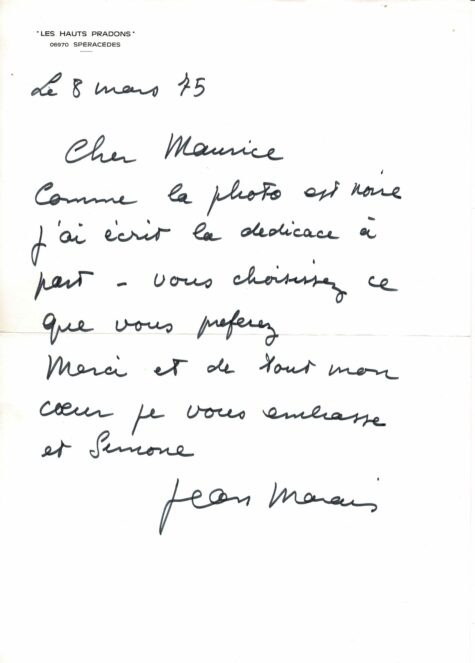 "LES HAUTS PRADONS"
06970 SPERACEDES
Le 8 mars 75
Cher Maurice
Comme la photo est noire
j'ai écrit la dedicace à
part - vous choisissez ce
que vous preferez
Merci et de tout mon
cœur je vous embrasse
et Simone
Jean Marais